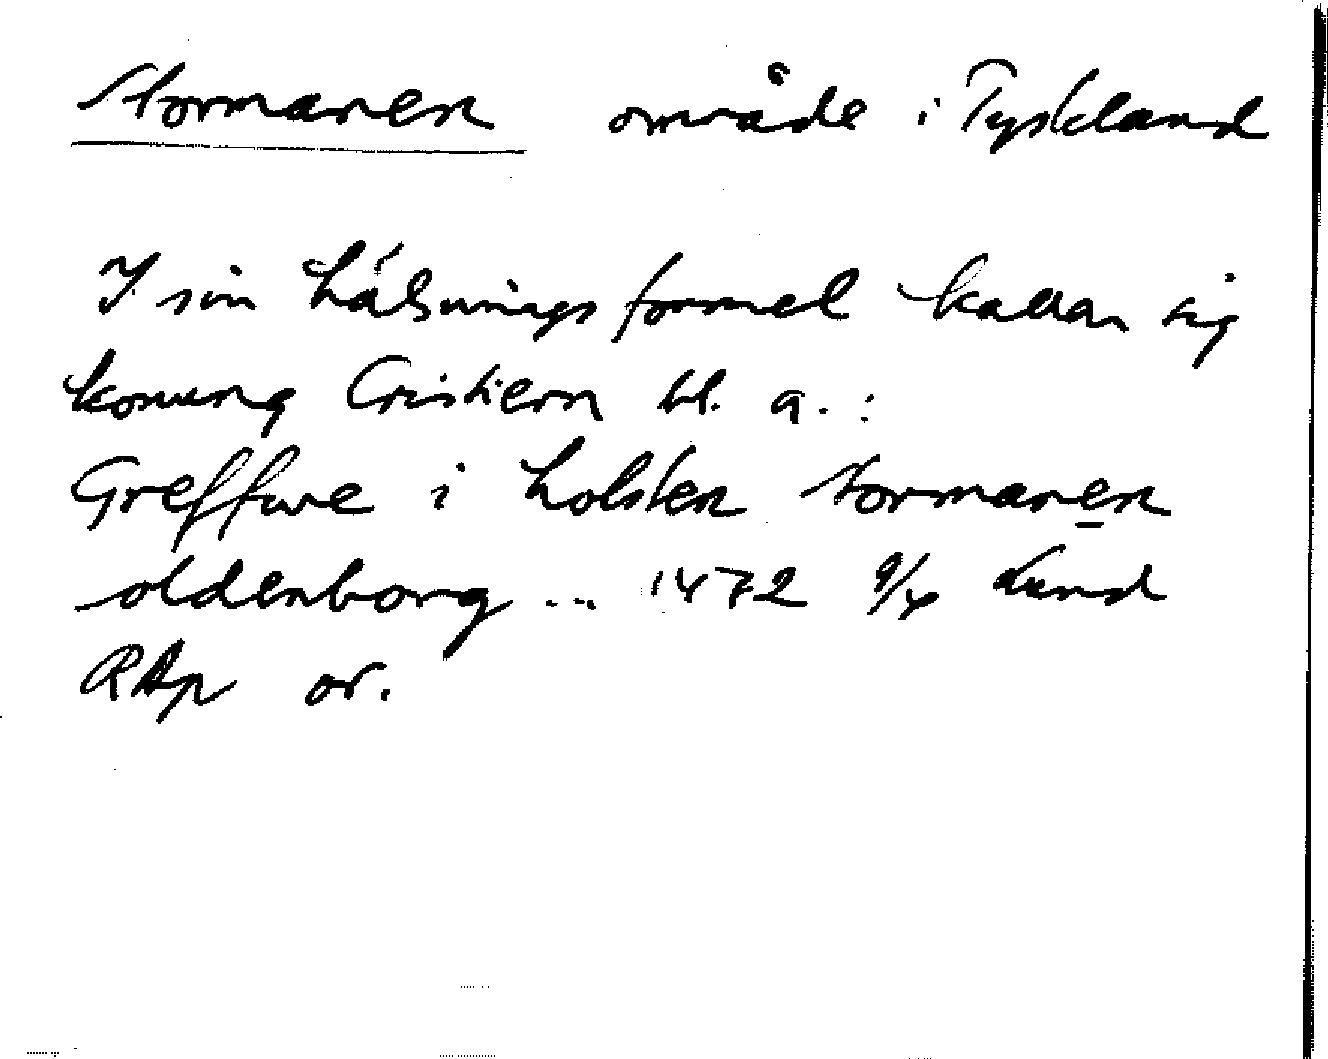 Stormaren område i Tyskland
I sin hälsningsformel kallar sig
konung Cristiern bl. a.:
Greffwe i holsten stormaren
oldenborg ... 1472 9/4 Lund
RAp or.